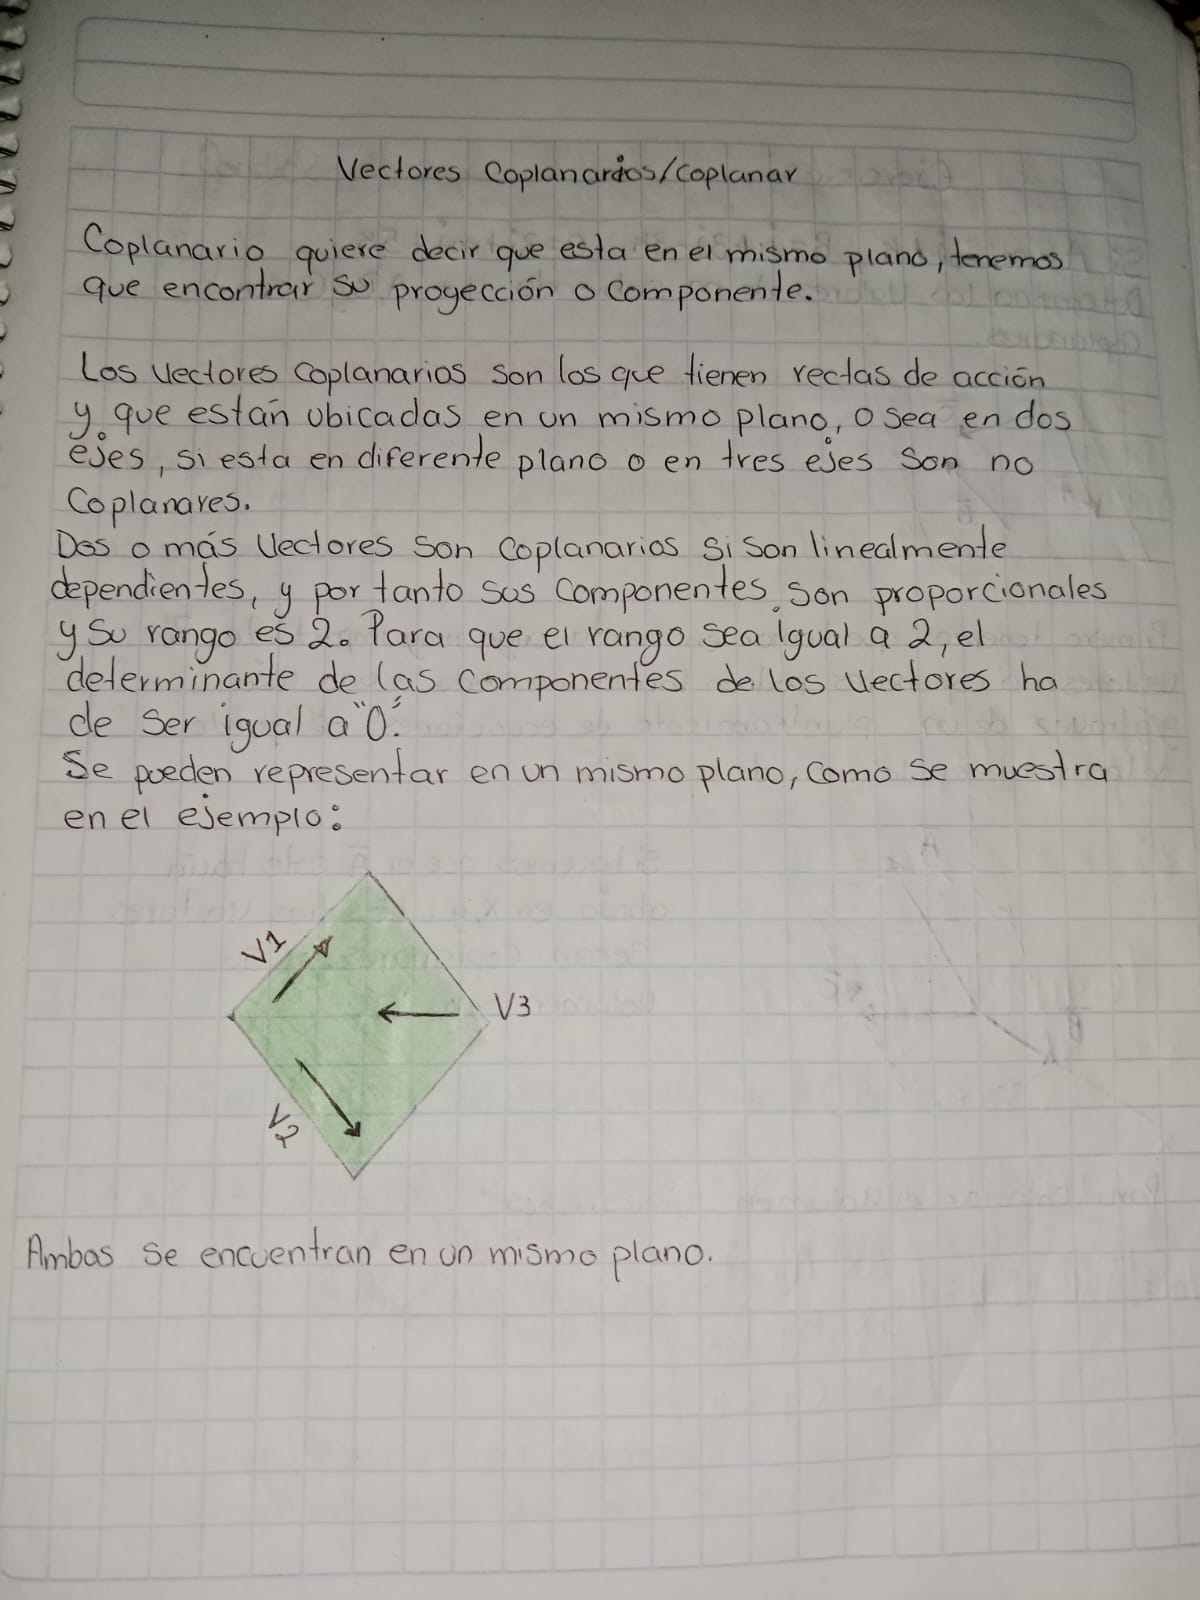 Vectores Coplanarios/Coplanar
Coplanario quiere decir que esta en el mismo plano, tenemos
que encontrar su proyección o componente.
Los Vectores Coplanarios son los que tienen rectas de acción
y que están ubicadas en un mismo plano, o sea en dos
ejes, si esta en diferente plano o en tres ejes son no
Coplanares.
Dos o más Vectores son Coplanarios si son linealmente
dependientes, y por tanto sus componentes son proporcionales
y su rango es 2. Para que el rango sea igual a 2, el
determinante de las componentes de los Vectores ha
de ser igual a "0".
Se pueden representar en un mismo plano, como se muestra
en el ejemplo:
V1
V3
V2
Ambas se encuentran en un mismo plano.